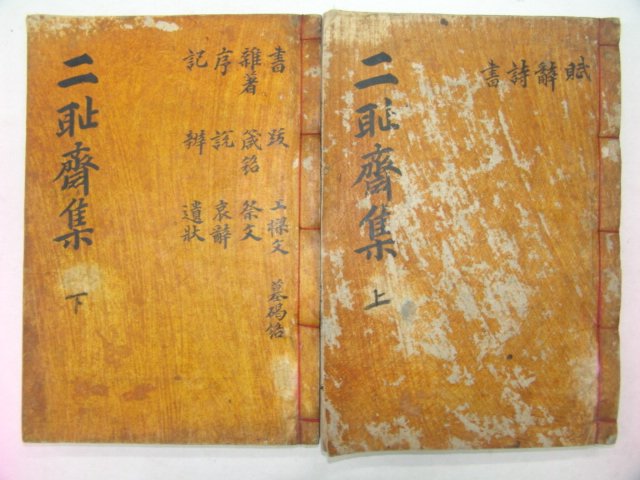 賦 辭 詩 書
二耻齊集 上
書 跋 上樑文 墓碣銘
雜著 箴銘 祭文
序 說 哀辭
記 辨 遺狀
二耻齊集 下